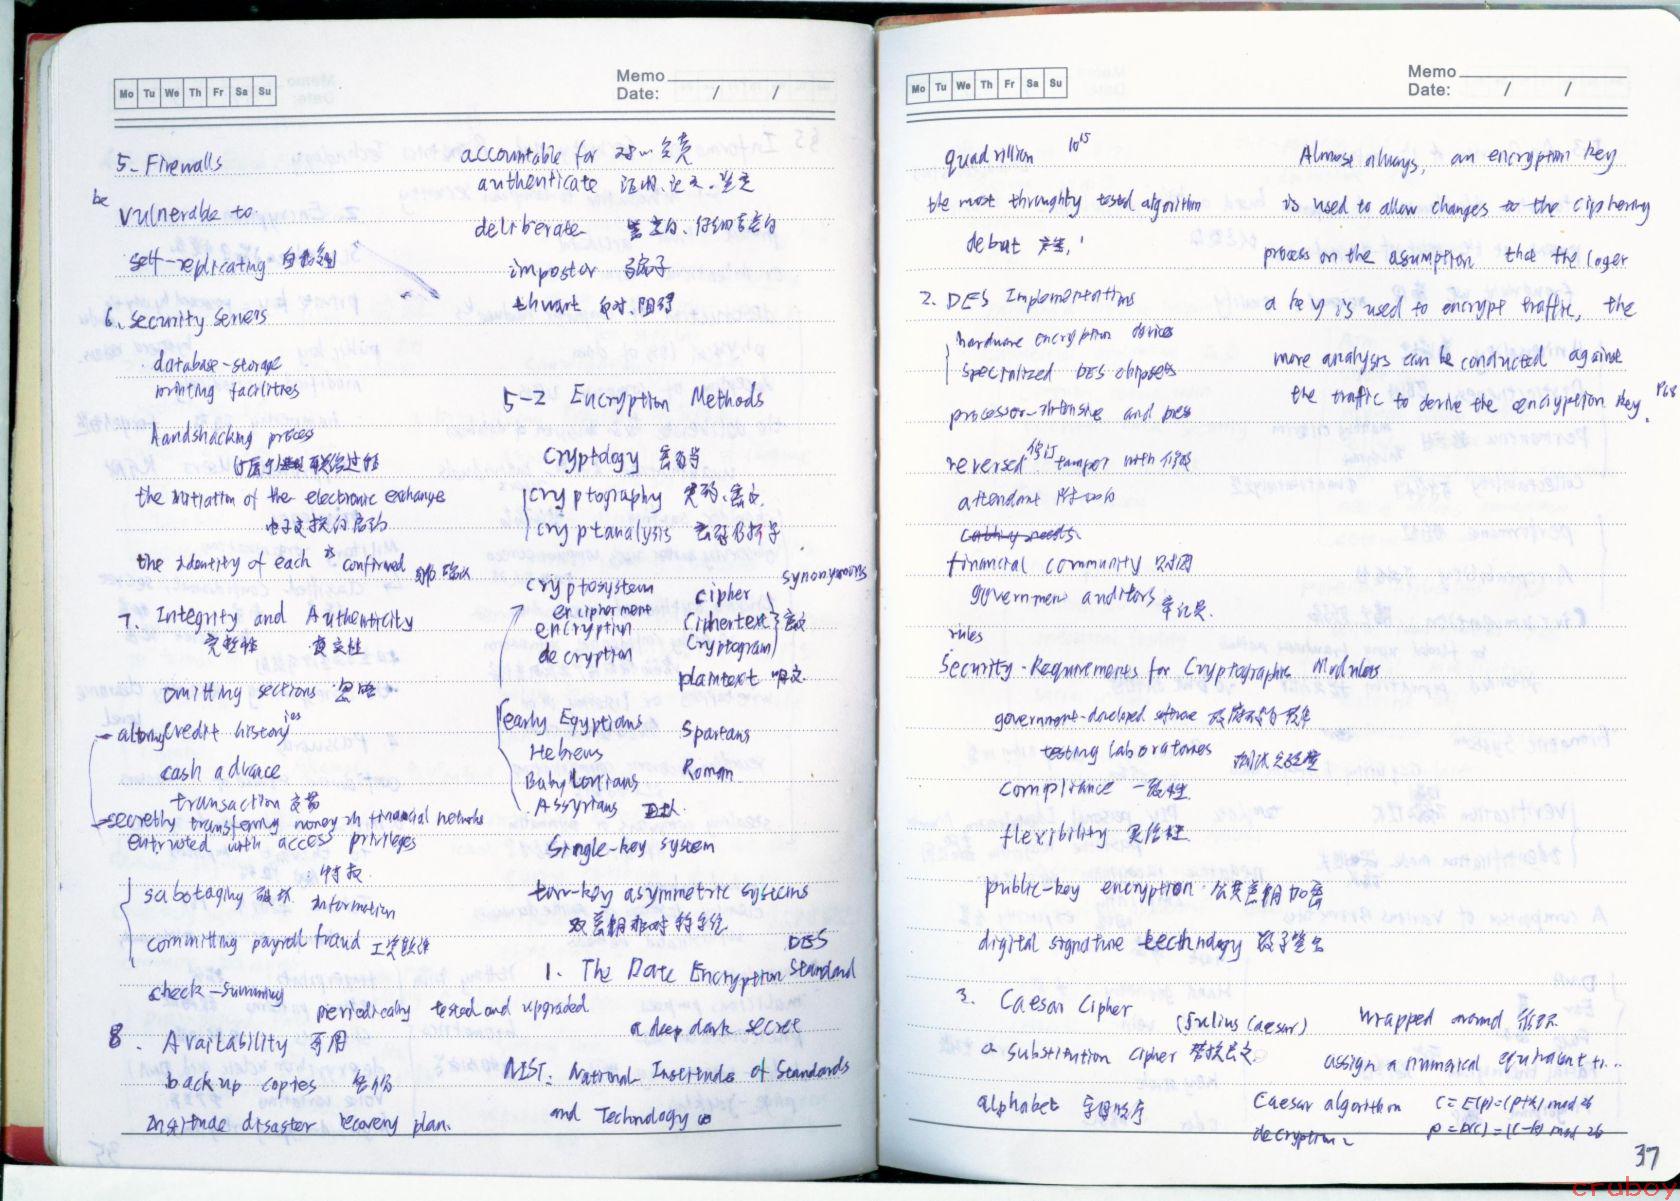 Mo Tu We Th Fr Sa Su
Memo
Date: / /
5. Firewalls
be vulnerable to
self-replicating 自复制
6. Security Servers
database-storage
printing facilities
handshacking process
the initiation of the electronic exchange
电子交换的启动
the identity of each is confirmed 身份确认
7. Integrity and Authenticity
完整性 真实性
omitting sections 忽略
altering credit histories
cash advance
transaction 交易
secretly transferring money in financial networks
entrusted with access privileges
特权
sabotaging 破坏 information
committing payroll fraud 工资欺诈
check-summing
periodically tested and upgraded
8. Availability 可用
backup copies 备份
institute disaster recovery plan.
accountable for 对…负责
authenticate 证明.
deliberate
impostor 骗子
thwart 反对.阻碍
5-2 Encryption Methods
cryptology 密码学
cryptography 密码.
cryptanalysis
cryptosystem
encipherment
encryption
decryption
cipher synonymous
ciphertext 密文
cryptogram
plaintext 明文
early Egyptians
Hebrews
Babylonians
Assyrians
Spartans
Roman
Single-key system
tow-key asymmetric systems
双密钥非对称系统
DES
1. The Date Encryption Standard
a deep dark secret
NIST: National Institude of Standards
and Technology
Mo Tu We Th Fr Sa Su
Memo
Date: / /
quadrillion 10¹⁵
the most throughty tested algorithm
debut
2. DES Implementations
hardware encryption devices
specialized DES chipsets
processor-intensive and
reversed 修订 tamper with 修改
attendant
financial community
government auditors 审计员.
rules
Security-Requirements for Cryptographic Modules
government-developed software 政府开发软件
testing laboratories 测试实验室
compliance 一致性.
flexibility 灵活性
public-key encryption 公共密钥加密
digital signature technology 数字签名
3. Caesar Cipher
(Julius Caesar)
a substitution cipher 替换密文
alphabet 字母顺序
Almost always, an encryption key
is used to allow changes to the ciphering
process on the asumption that the loger
a key is used to encrypt traffic, the
more analysis can be conducted against
the traffic to derive the encryption key. P68
wrapped around 循环.
assign a numerical equivalent to...
Caesar algorithm C=E(p)=(p+k) mod 26
decryption p=D(C)=(C-k) mod 26
37
cruboy